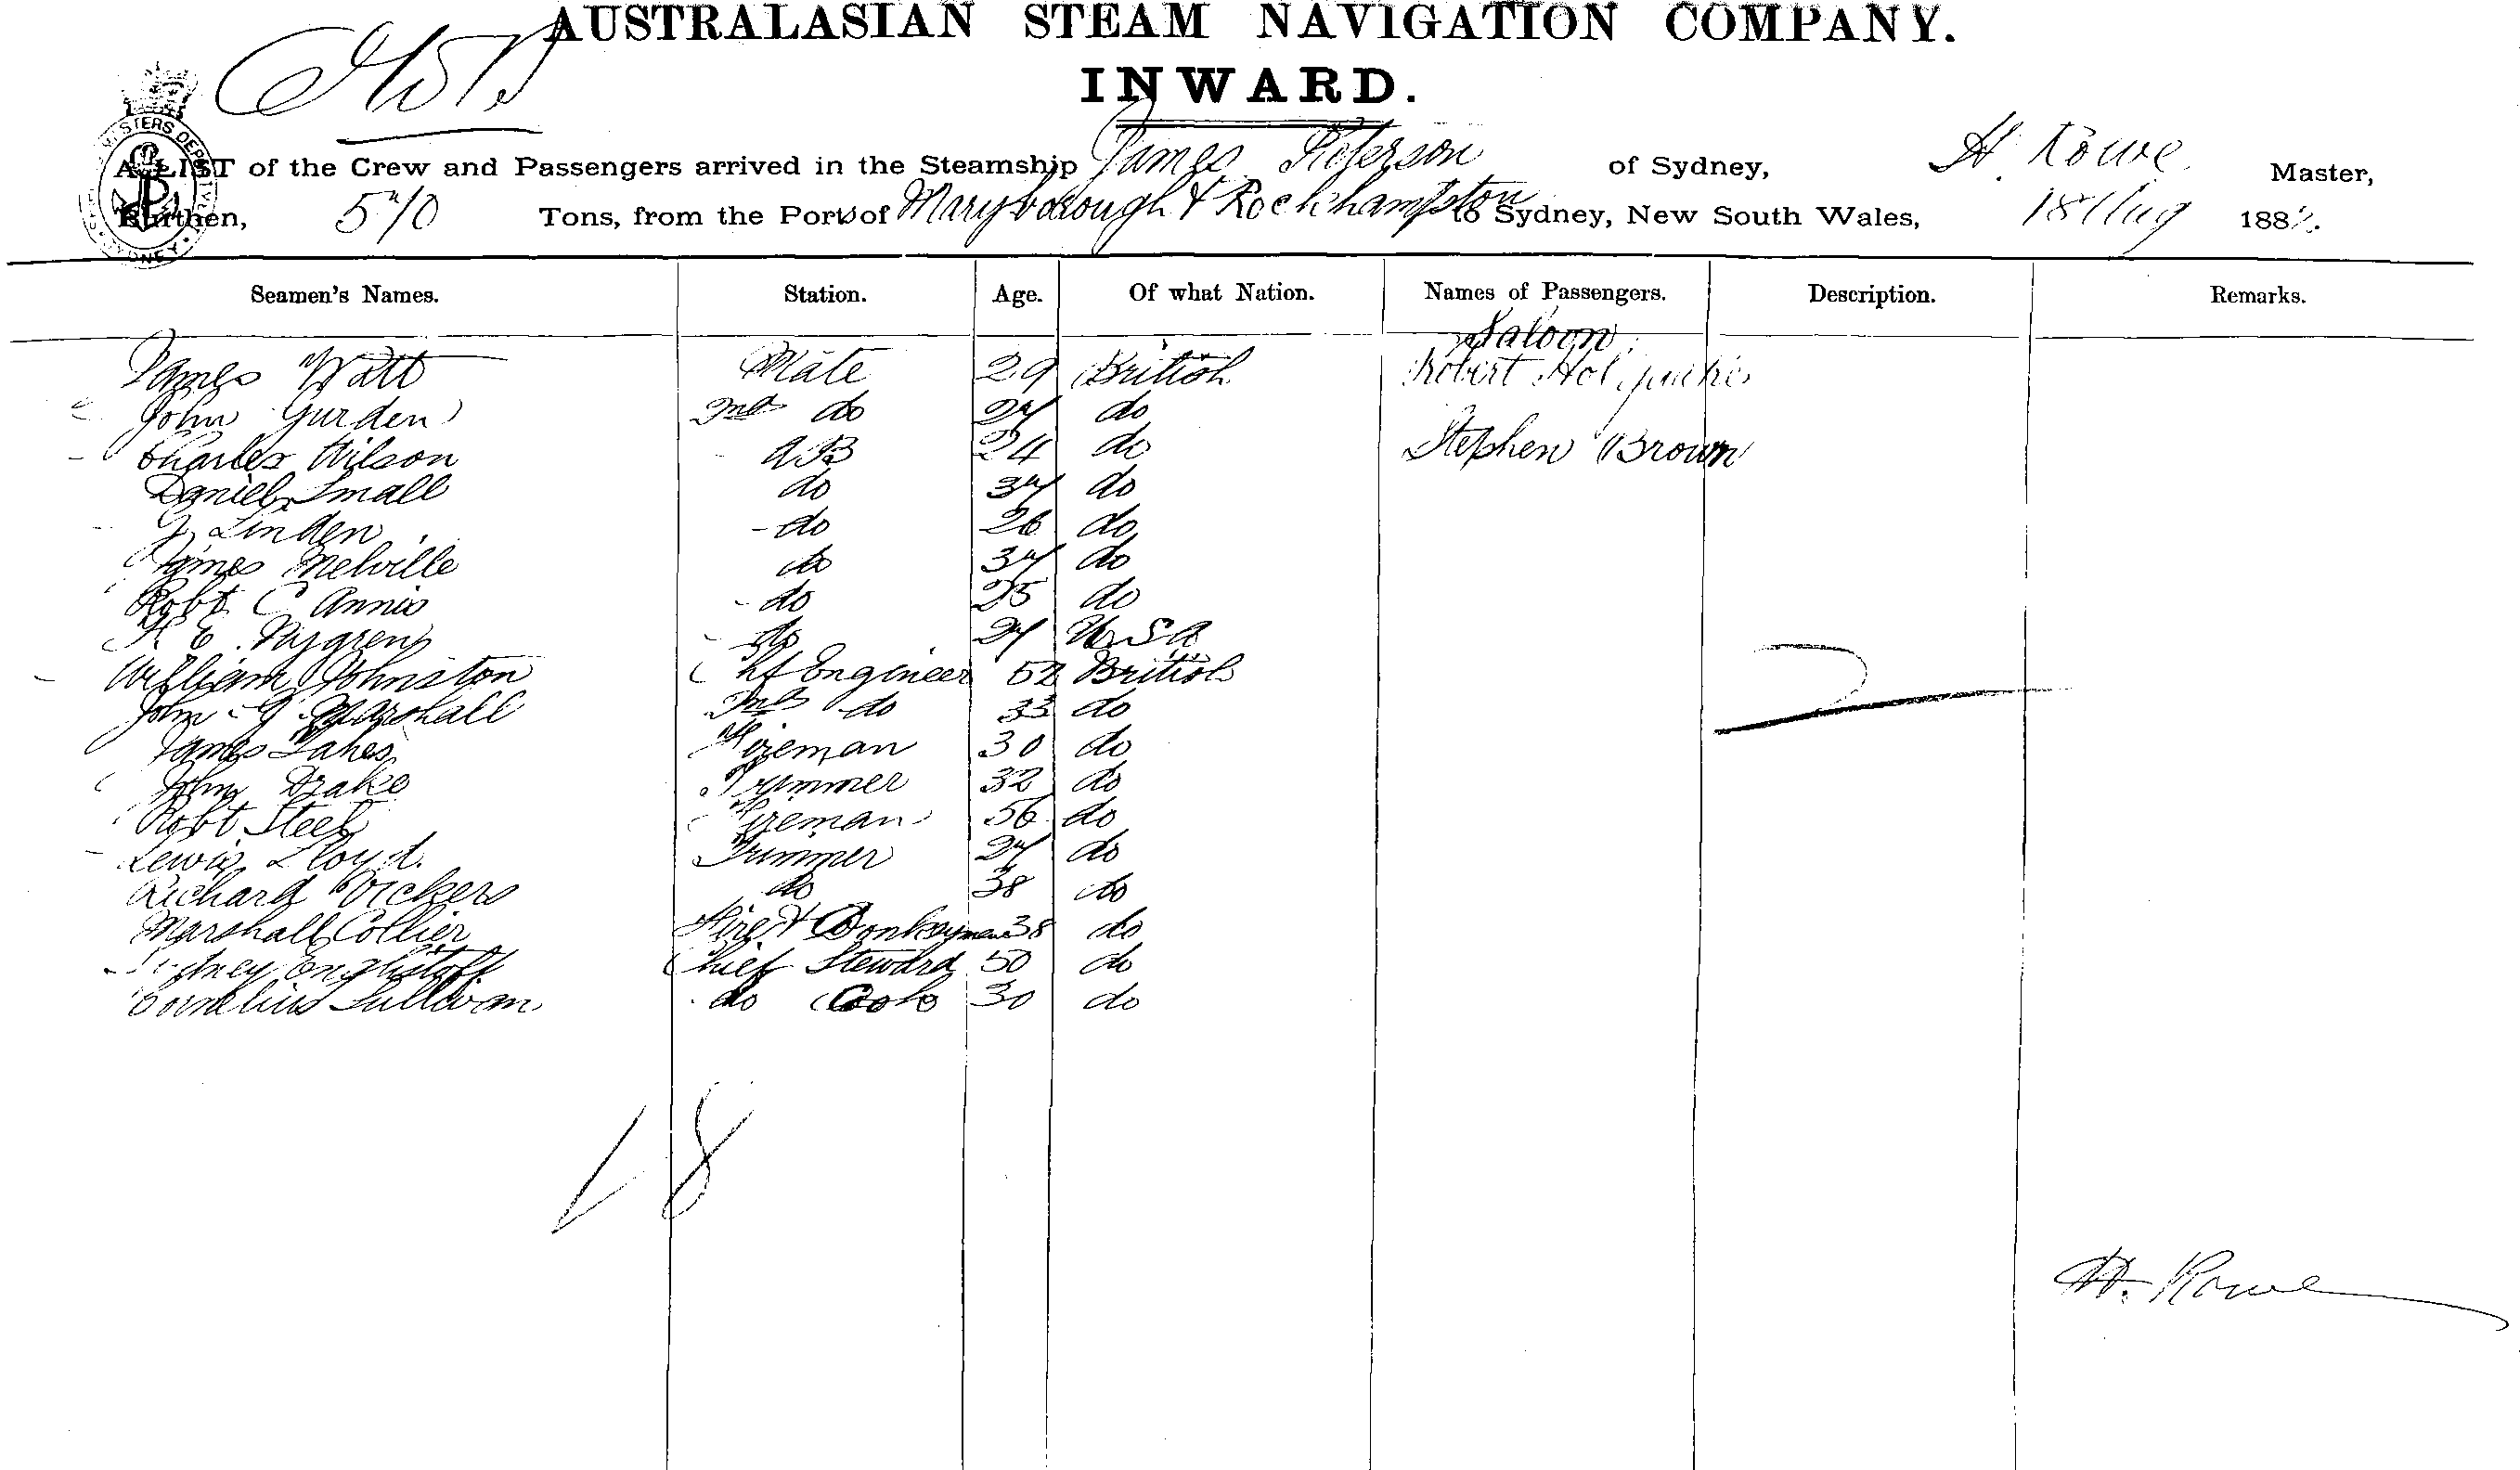 AUSTRALASIAN STEAM NAVIGATION COMPANY.
INWARD.
A LIST of the Crew and Passengers arrived in the Steamship James Paterson of Sydney, H. Rowe Master,
Burthen, 570 Tons, from the Port of Maryborough & Rockhampton to Sydney, New South Wales, 18 Aug 188
Seamen's Names. Station. Age. Of what Nation. Names of Passengers. Description. Remarks.
Saloon
James Watt Mate 29 British Robert
John Gurden 2nd do 27 do
Charles Wilson AB 24 do Stephen Brown
Daniel Small do 37 do
J Linden do 26 do
James Melville do 37 do
Robt C Annis do 25 do
K E Nygren do 27 U.S.A
William Johnston Chf Engineer 52 British
John G Marshall 2nd do 33 do
James Lakes Fireman 30 do
John Drake Trimmer 32 do
Robt Steel Fireman 56 do
Lewis Lloyd. Trimmer 27 do
Richard Vickers do 38 do
Marshall Collier Fire & Donkeyman 38 do
Sydney Chief Steward 50 do
Cornelius Sullivan do Cook 30 do
2
18
H. Rowe